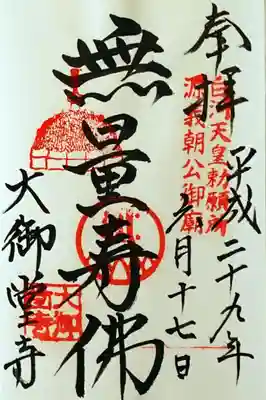 奉拝
白河天皇勅願所
源義朝公御廟
平成二十九年
月十七日
無量寿佛
大御堂寺